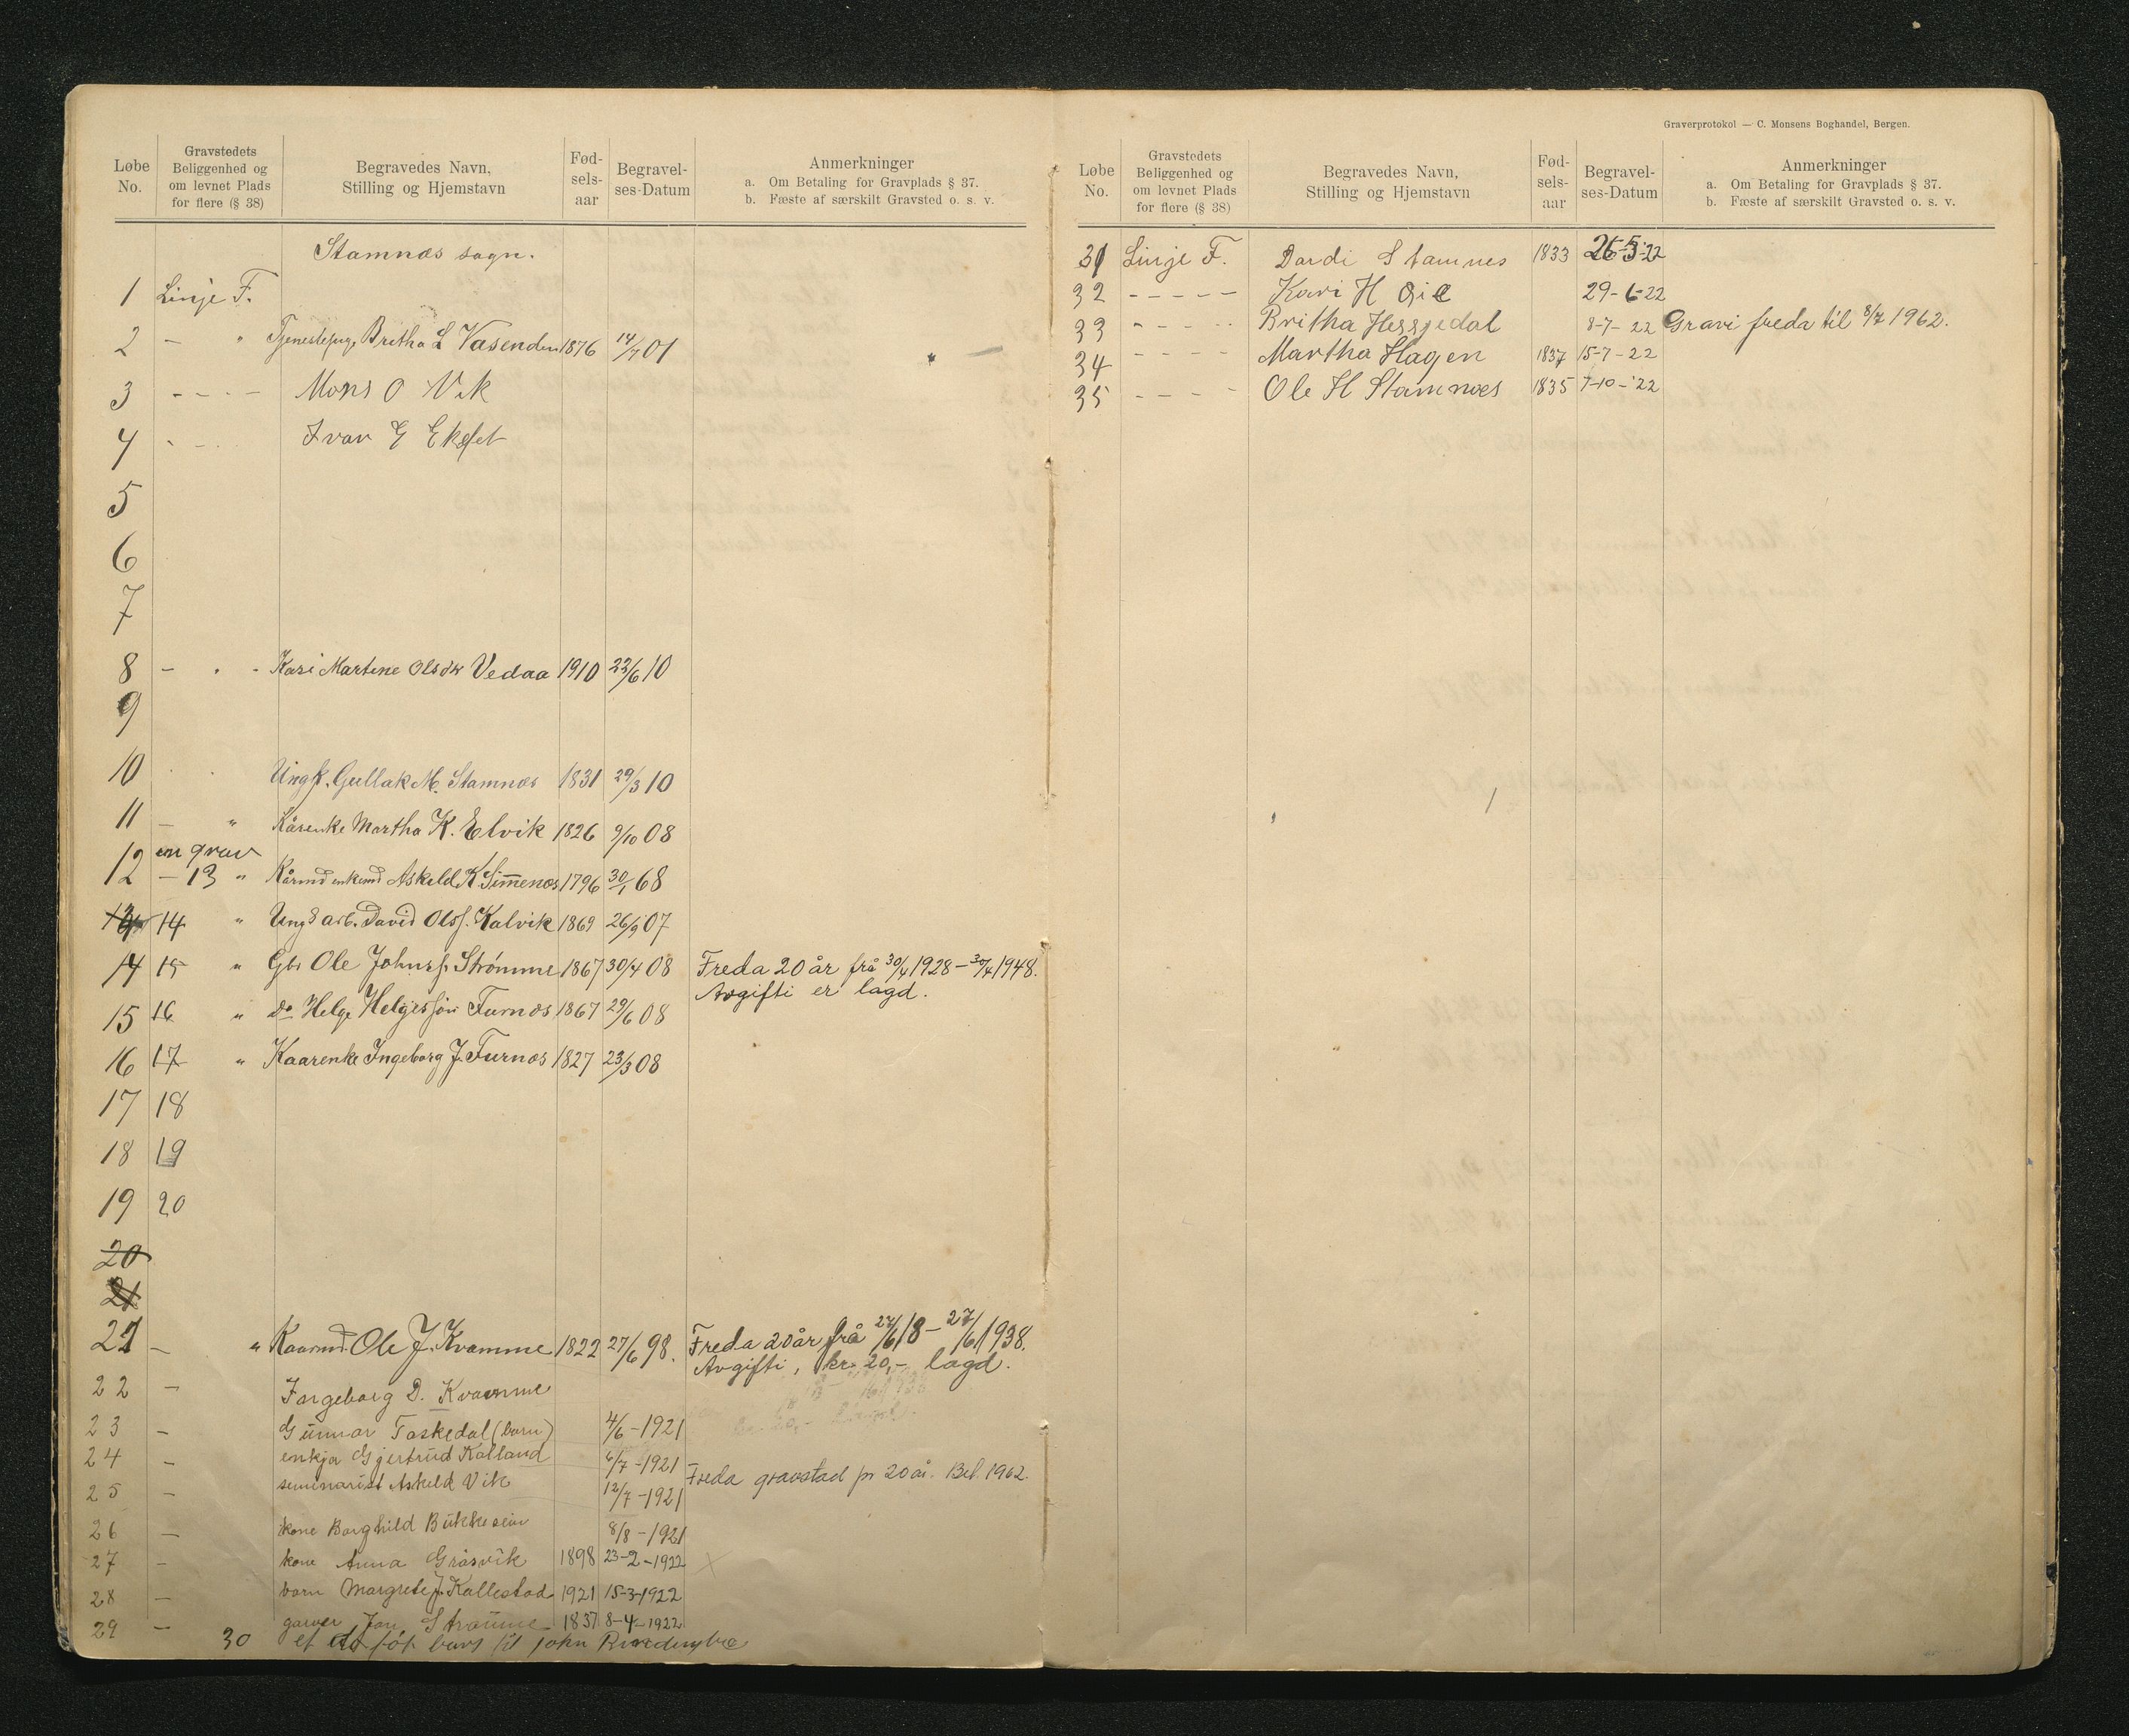 Løbe No. Gravstedets Beliggenhed og om levnet Plads for flere (§ 38) Begravedes Navn, Stilling og Hjemstavn Fød-sels-aar Begravel-ses-Datum Anmerkninger a. Om Betaling for Gravplads § 37. b. Fæste af særskilt Gravsted o. s. v.
Stamnæs sogn.
1 Linje F.
2 — " Tjenestepige Britha L Vasenden 1876 14/7 01
3 - - - - Mons O Vik
4 - - - Ivar E
5
6
7
8 — - - Kari Martine Olsdtr Vedaa 1910 22/6 10
9
10 Ungk. Gullak M. Stamnæs 1831 29/3 10
11 — " Kårenke Martha K. Elvik 1826 9/10 08
en grav
12 — 13 " Kårmd enkemd Askeld K. Simmenæs 1796 30/1 68
14 " Ungd arb. David Olss. Kalvik 1869 26/9 07
14 15 " Gbr Ole Johnss. Strømme 1867 30/4 08 Freda 20 år frå 30/4 1928 — 30/4 1948.
Avgifti er lagd.
15 16 " Do Helge Helgessøn Furnæs 1867 29/6 08
16 17 " Kaarenke Ingeborg J. Furnæs 1827 23/3 08
17 18
18 19
19 20
20
21
21 — " Kaarmd. Ole J. Kvamme 1822 27/6 98. Freda 20 år frå 27/6 18 — 27/6 1938.
Avgifti, kr. 20,- lagd.
22 — Ingeborg D. Kvamme
23 — Gunnar Toskedal (barn) 4/6 - 1921
24 — enkja Gjertrud Kalland 6/7 - 1921
25 — seminarist Askeld Vik 12/7 - 1921 Freda gravstad pr 20 år. Bet. 1962.
26 — kone Borghild 8/8 - 1921
27 — kone Anna Gråsvik 1898 23-2-1922
28 — barn Margrete J. Kallestad 1921 15-3-1922
29 — garver Jon Straume 1837 8-4-1922
30 et født barn til John
Graverprotokol — C. Monsens Boghandel, Bergen.
Løbe No. Gravstedets Beliggenhed og om levnet Plads for flere (§ 38) Begravedes Navn, Stilling og Hjemstavn Fød-sels-aar Begravel-ses-Datum Anmerkninger a. Om Betaling for Gravplads § 37. b. Fæste af særskilt Gravsted o. s. v.
31 Linje F. Dardi Stamnes 1833 26-5-22
32 - - - - - Kari H Gil 29-6-22
33 - - - - Britha Hessjedal 8-7-22 Gravi freda til 8/7 1962.
34 - - - - Martha Hagen 1837 15-7-22
35 - - - - Ole H Stamnæs 1835 7-10-22